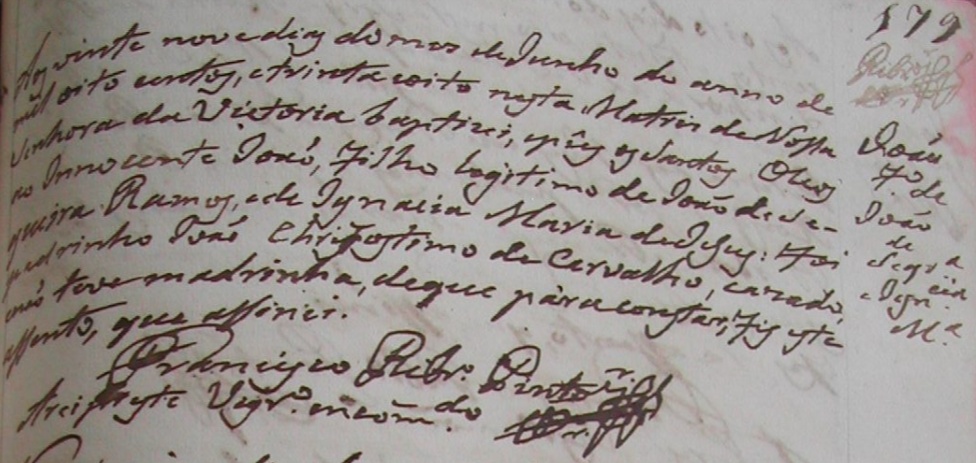 179
Aos vinte nove dias do mes de Junho do anno de
mil oito centos, e trinta e oito nesta Matris de Nossa
Senhora da Victoria baptizei, e pûs os Santos Oleos
ao Innocente João, filho legitimo de João de Se-
queira Ramos, e de Ignacia Maria de Jesus: Foi
padrinho João Chrisostimo de Carvalho, cazado,
enaõ teve madrinha, deque para constar, fis este
assento, que assinei.
Francisco Ribr.º Pinto
Arcipreste Vigr.º encom.do
Ribr.º
João
F.º de
João
de
Seqr.ª
e Ign.cia
M.ª